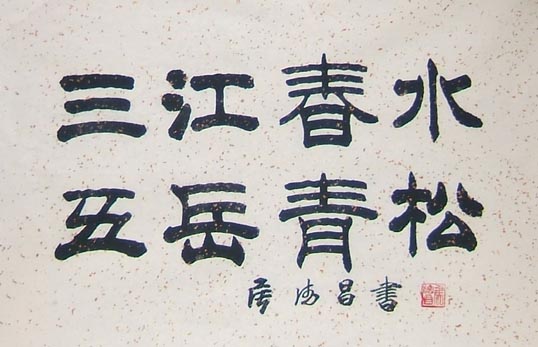 三江春水
五岳青松
昌書